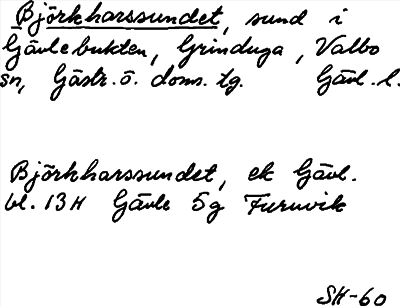 Björkharssundet, sund i
Gävlebukten, Grinduga, Valbo
sn, Gästr. ö. doms. tg. Gävl. l.
Björkharssundet, ek Gävl.
bl. 13H Gävle 5g Furuvik
SH-60